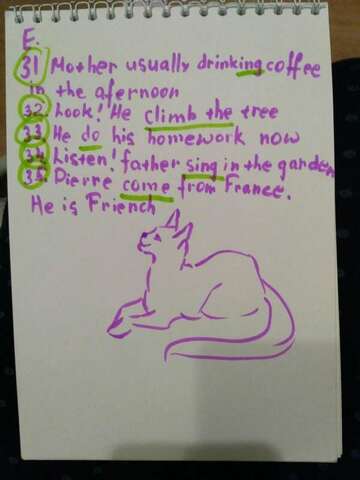 E.
31 Mother usually drinking coffee
in the afernoon
32. Look! He climb the tree
33 He do his homework now
34 Listen! father sing in the garden
35. Pierre come from France.
He is Friench